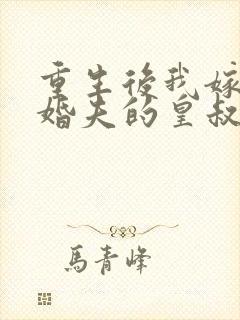 重生後我嫁
婚夫的皇叔
馬青峰